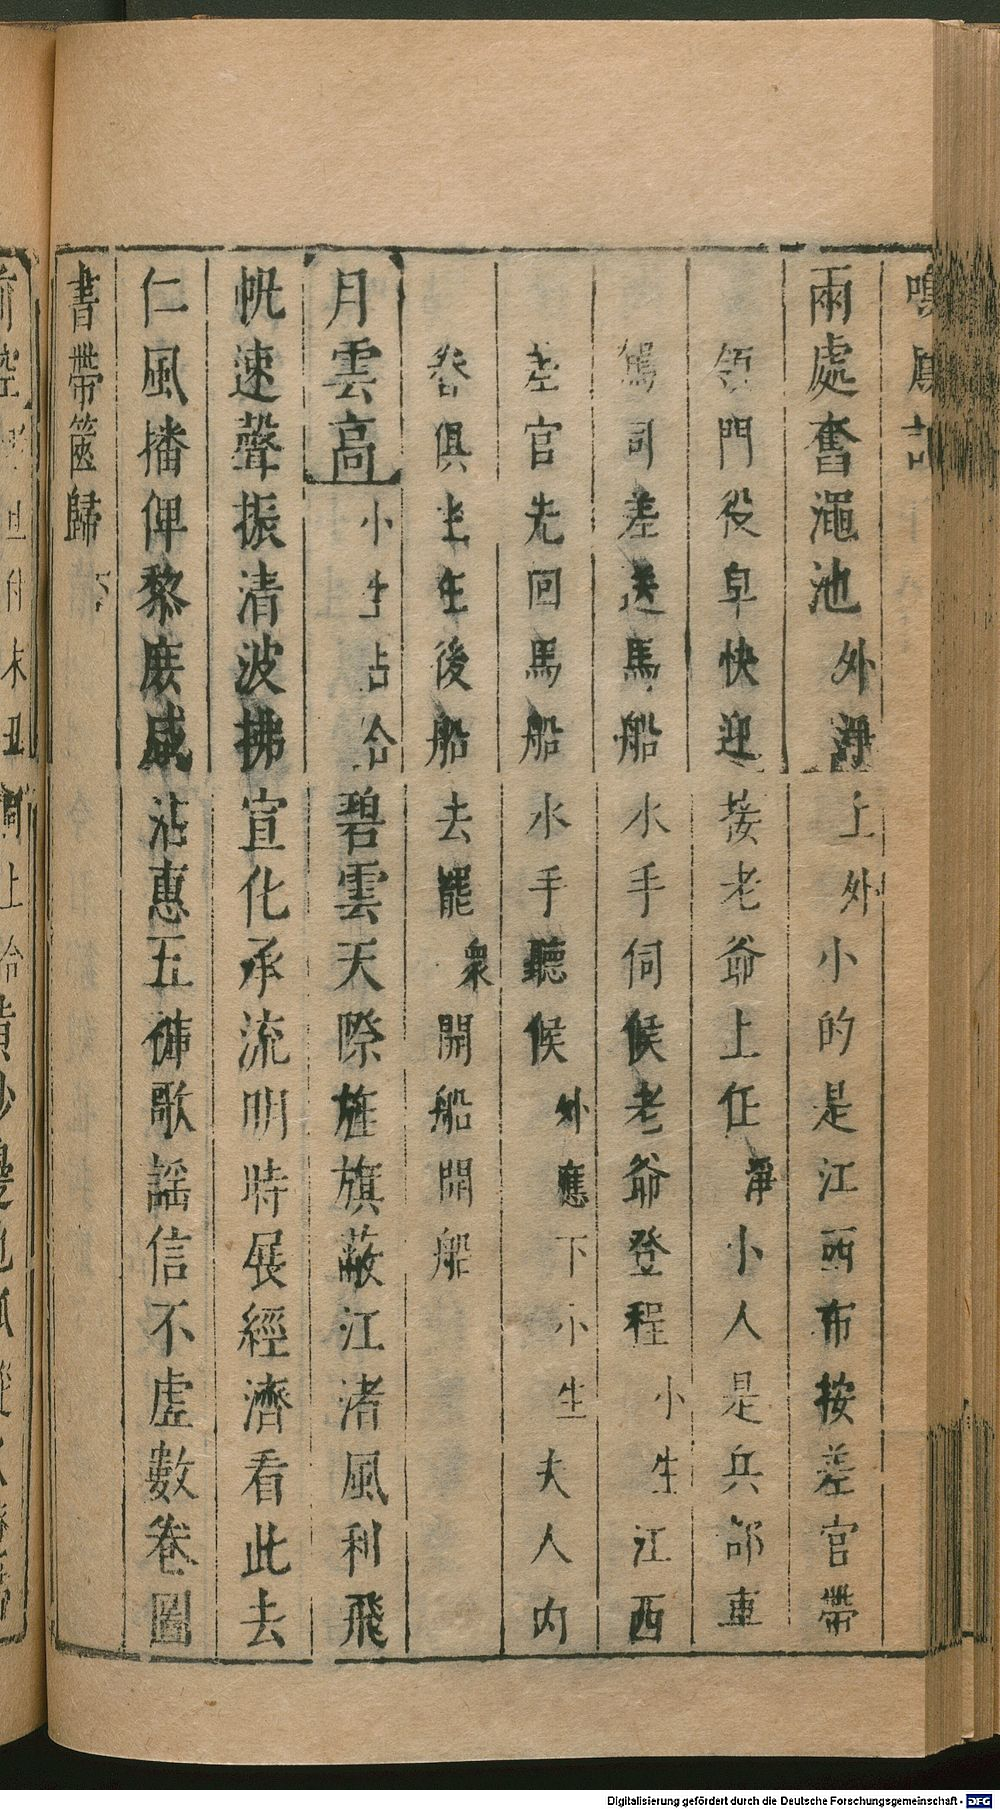 兩處奮澠池外淨上外小的是江西布按差官帶
領門役皁快迎接老爺上任淨小人是兵部車
駕司差送馬船水手伺候老爺登程小生江西
差官先回馬船水手聽候外應下小生夫人內
眷俱坐座後船去罷衆開船開船
月雲高小生占合碧雲天際旌旗蔽江渚風利飛
帆速聲振清波拂宣化承流明時展經濟看此去
仁風播俾黎庶咸沾惠五褲歌謡信不虛數卷圖
書帶篋歸 下
Digitalisierung gefördert durch die Deutsche Forschungsgemeinschaft - DFG